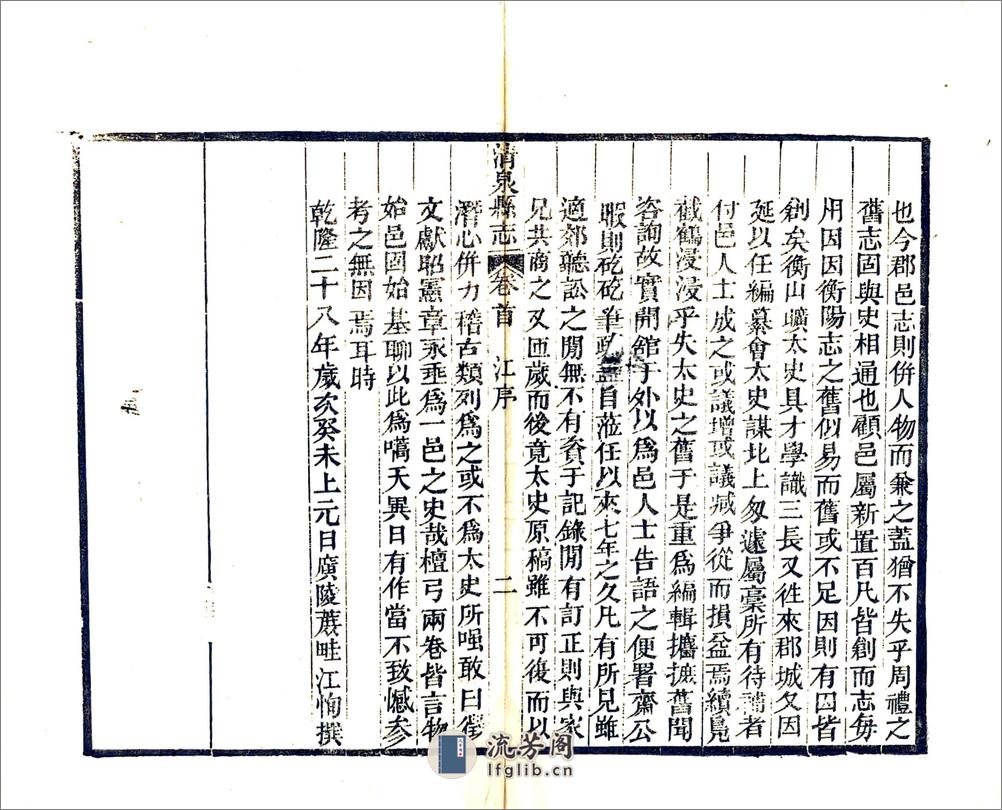 也今郡邑志則併人物而兼之蓋猶不失乎周禮之
舊志固與史相通也顧邑屬新置百凡皆創而志毎
用因因衡陽志之舊似易而舊或不足因則有因皆
創矣衡山曠太史具才學識三長又徃來郡城久因
延以任編纂會太史謀北上匆遽屬槀所有待補者
付邑人士成之或議增或議减爭從而損益焉續鳧
截鶴浸浸乎失太史之舊于是重爲編輯攟摭舊聞
咨詢故實開館于外以爲邑人士告語之便署齋公
暇則矻矻筆政蓋自蒞任以來七年之久凡有所見雖
適郊聽訟之閒無不有資于記錄閒有訂正則與家
兄共商之又匝歲而後竟太史原稿雖不可復而以
清泉縣志 卷首 江序 二
潛心併力稽古類列爲之或不爲太史所嗤敢曰徵
文獻昭憲章永垂爲一邑之史哉檀弓兩卷皆言物
始邑固始基聊以此爲嚆矢異日有作當不致憾參
考之無因焉耳時
乾隆二十八年歲次癸未上元日廣陵蔗畦江恂撰
流芳阁
lfglib.cn